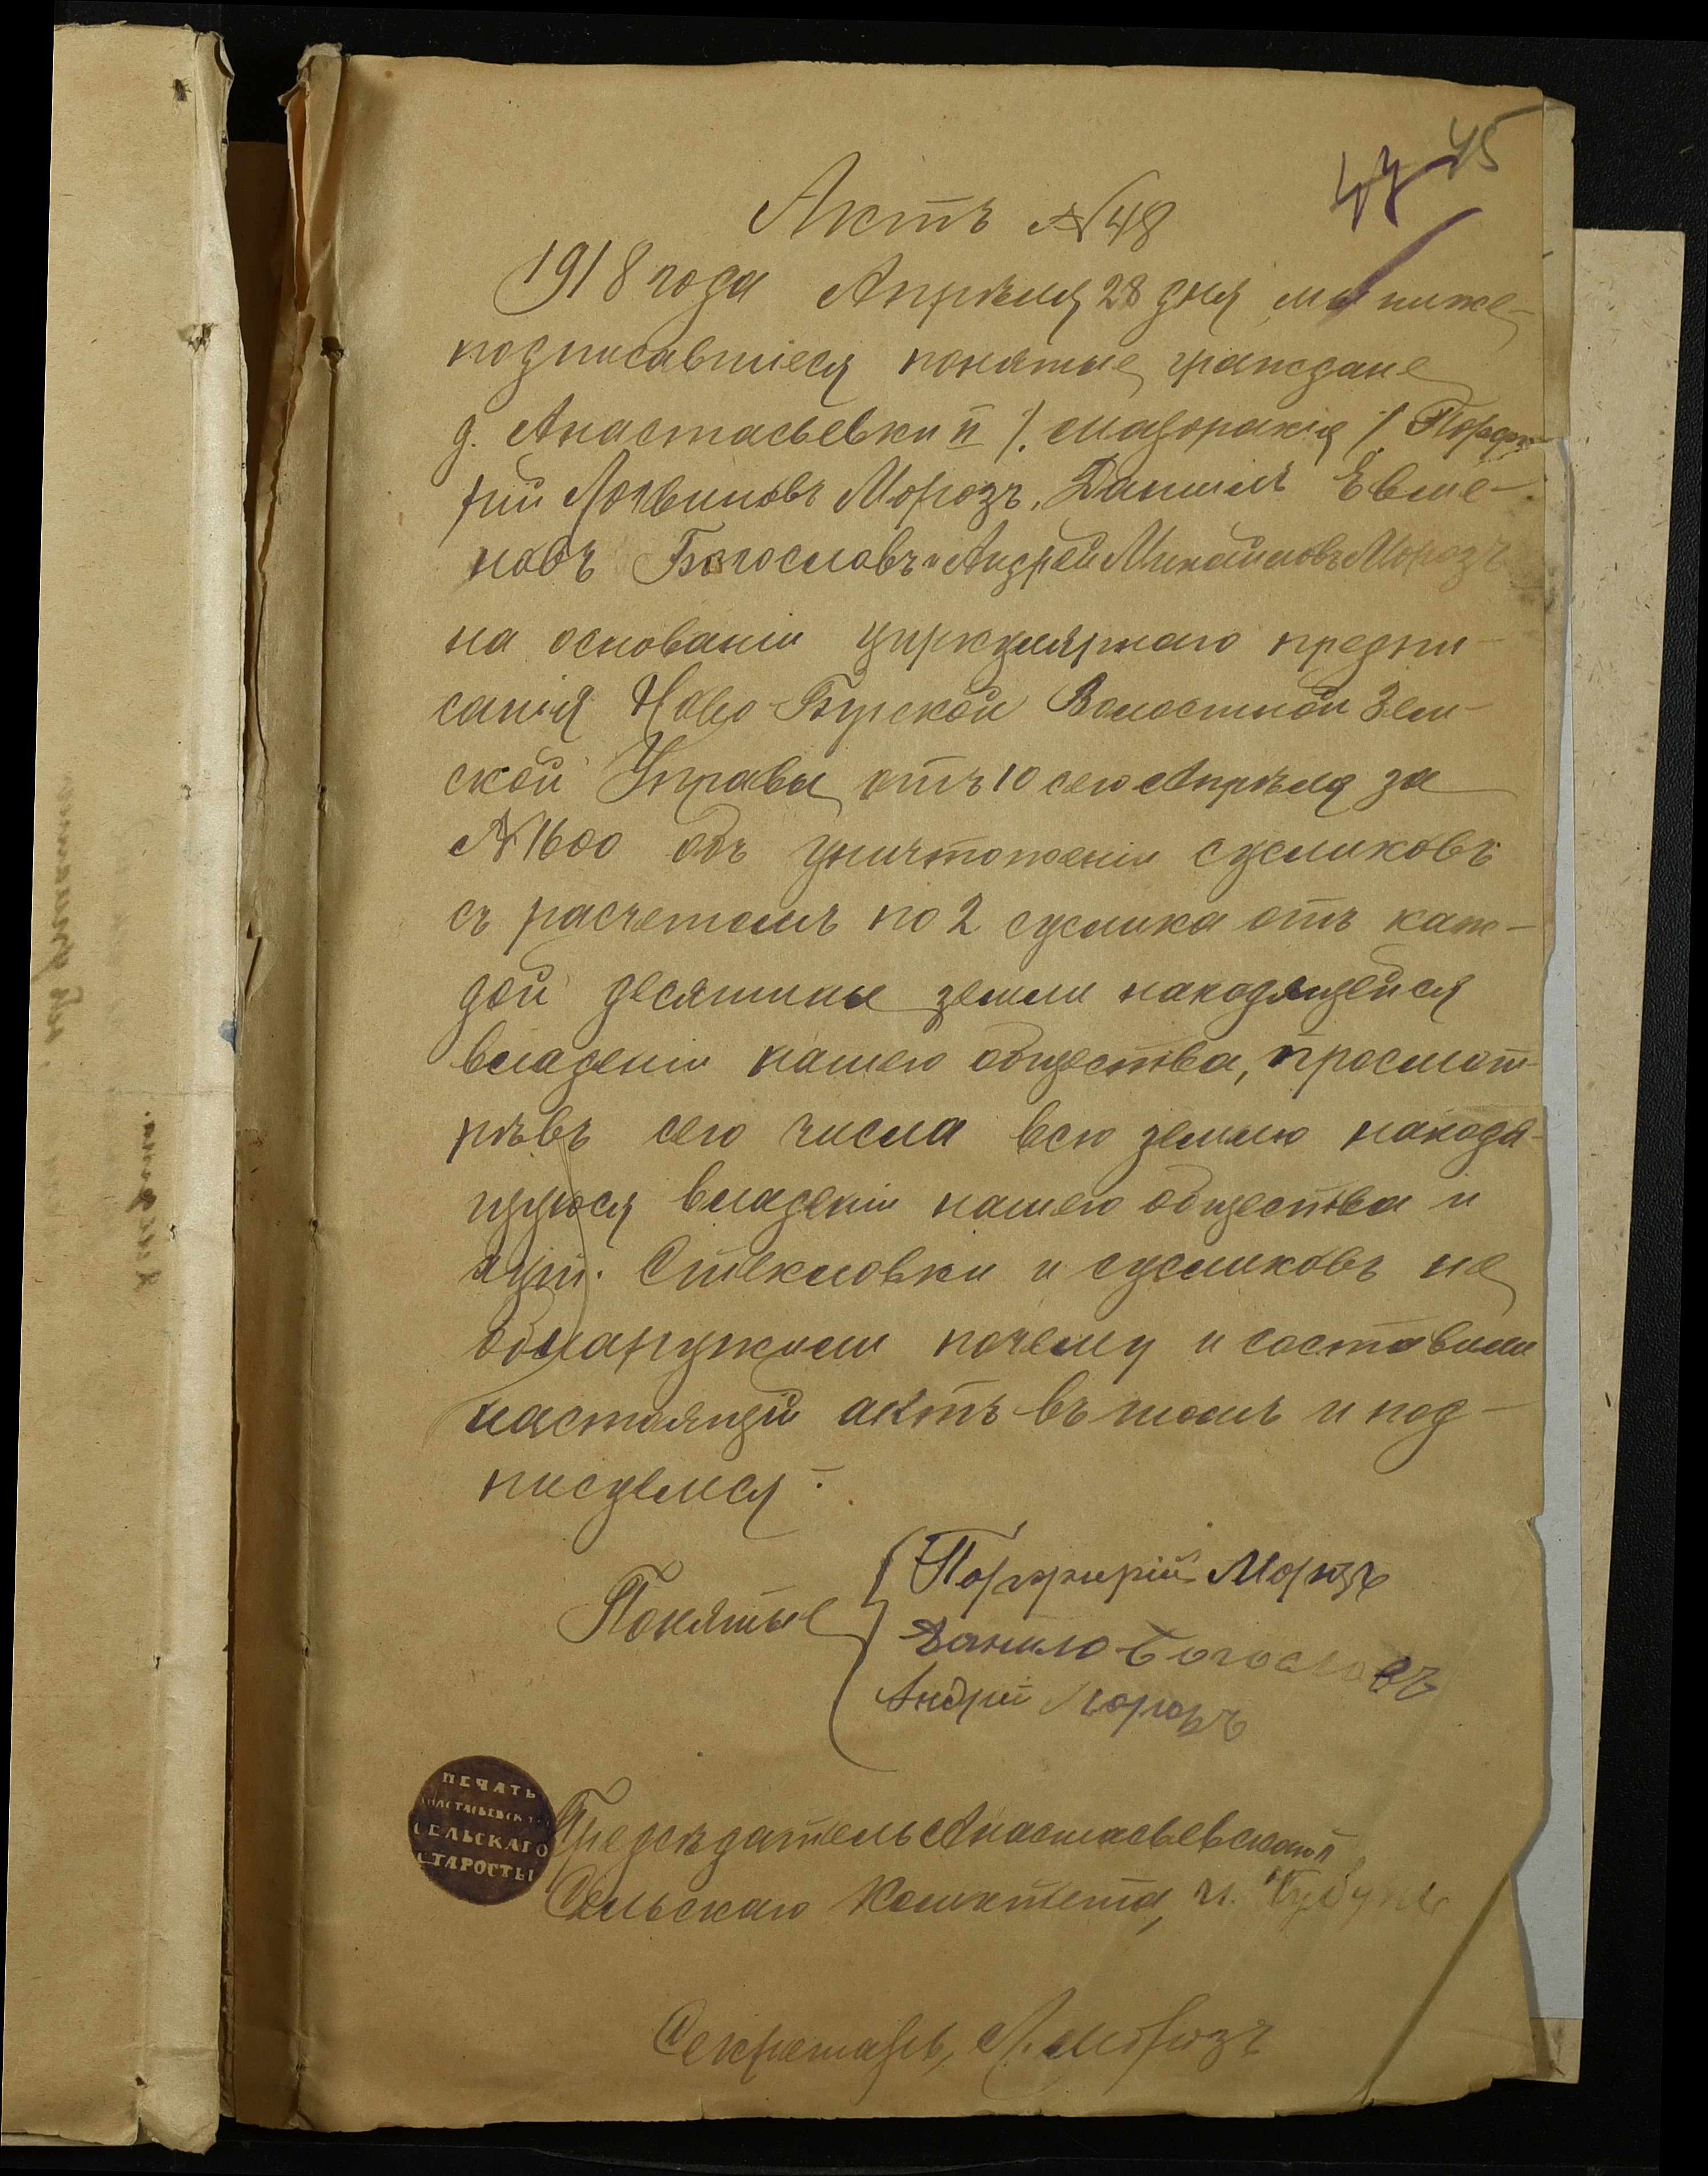 45
47
Актъ №48
1918 года Апрѣля 28 дня, мы ниже-
подписавшіеся понятые, граждане
д. Анастасьевки II /. маіоракія / Порфи-
рій Логвиновъ Морозъ, Даниилъ Евме-
новъ Богословъ и Андрей Михайловъ Морозъ
на основаніи циркулярнаго предпи-
санія Ново-Бугской Волостной Зем-
ской Управы отъ 10 сего Апрѣля за
№1600 объ уничтоженіи сусликовъ
съ расчетомъ по 2 суслика отъ каж-
дой десятины земли находящейся
владеніи нашего общества, просмот-
рѣвъ сего числа всю землю находя-
щуюся владеніи нашего общества и
хут. Стекловки и сусликовъ не
обнаружили почему и составили
настоящій актъ въ томъ и под-
писуемся.
Понятые
Порфирій Морозъ
Данило Богословъ
Андрій Морозъ
ПЕЧАТЬ
АНАСТАСЬЕВСКАГО
СЕЛЬСКАГО
СТАРОСТЫ
Предсѣдатель Анастасьевскаго
Сельскаго Комитета,
Секретарь, Л. Морозъ